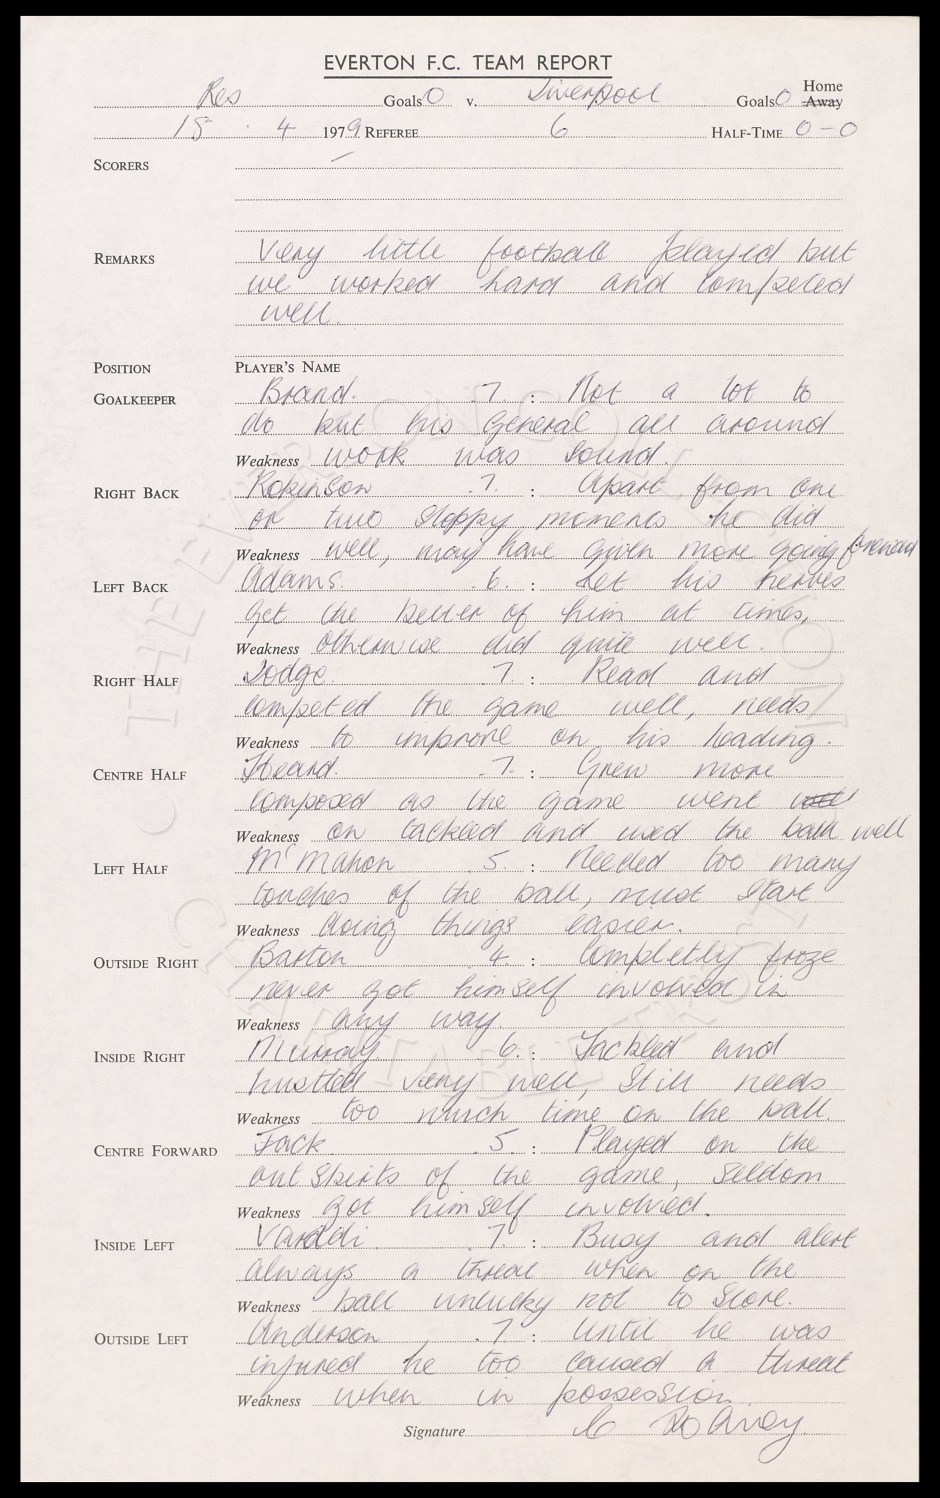 EVERTON F.C. TEAM REPORT
Res Goals 0 v. Liverpool Goals 0 Home Away
18 . 4 1979 REFEREE 6 HALF-TIME 0-0
SCORERS —
REMARKS Very little football played but
we worked hard and competed
well.
POSITION PLAYER'S NAME
GOALKEEPER Brand. 7. : Not a lot to
do but his general all around
Weakness work was sound.
RIGHT BACK Robinson 7. : Apart from one
or two sloppy moments he did
Weakness well, may have given more going forward
LEFT BACK Adams. 6. : Let his nerves
get the better of him at times,
Weakness otherwise did quite well.
RIGHT HALF Dodge. 7. : Read and
competed the game well, needs
Weakness to improve on his heading.
CENTRE HALF Heard. 7. : Grew more
composed as the game went well
Weakness on tackled and used the ball well
LEFT HALF McMahon 5. : Needed too many
touches of the ball, must start
Weakness doing things easier.
OUTSIDE RIGHT Barton 4. : Completly froze
never got himself involved in
Weakness any way.
INSIDE RIGHT Murray. 6. : Tackled and
hustled very well, still needs
Weakness too much time on the ball.
CENTRE FORWARD Jack 5. : Played on the
outskirts of the game, seldom
Weakness got himself involved.
INSIDE LEFT Varadi 7. : Busy and alert
always a threat when on the
Weakness ball unlucky not to score.
OUTSIDE LEFT Anderson 7 : Until he was
injured he too caused a threat
Weakness when in possession.
Signature C
© THE EVERTON COLLECTION CHARITABLE TRUST